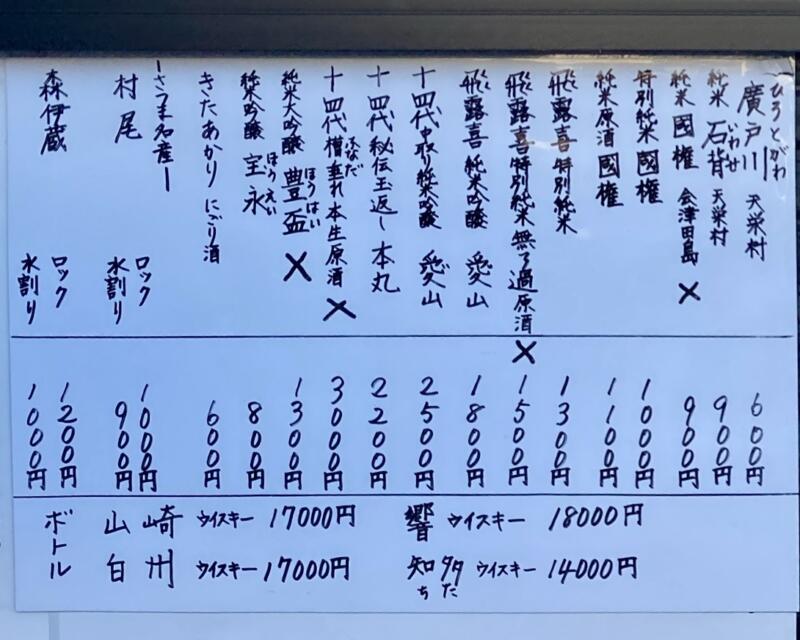 ひろとがわ
廣戸川 天栄村 600円
いわせ
純米 石背 天栄村 900円
純米 國権 会津田島 × 900円
特別純米 國権 1000円
純米原酒 國権 1100円
飛露喜 特別純米 1300円
飛露喜 特別純米 無ろ過原酒 × 1500円
飛露喜 純米吟醸 愛山 1800円
十四代 中取り純米吟醸 愛山 2500円
十四代 秘伝玉返し 本丸 2200円
ふなだ
十四代 槽垂れ 本生原酒 × 3000円
ほうはい
純米大吟醸 豊盃 × 1300円
ほうえい
純米吟醸 宝永 800円
きたあかり にごり酒 600円
ーさつま名産ー
村尾 ロック 1000円
水割り 900円
森伊蔵 ロック 1200円
水割り 1000円
ボトル
山崎 ウイスキー 17000円
白州 ウイスキー 17000円
響 ウイスキー 18000円
知多 ウイスキー 14000円
ちた